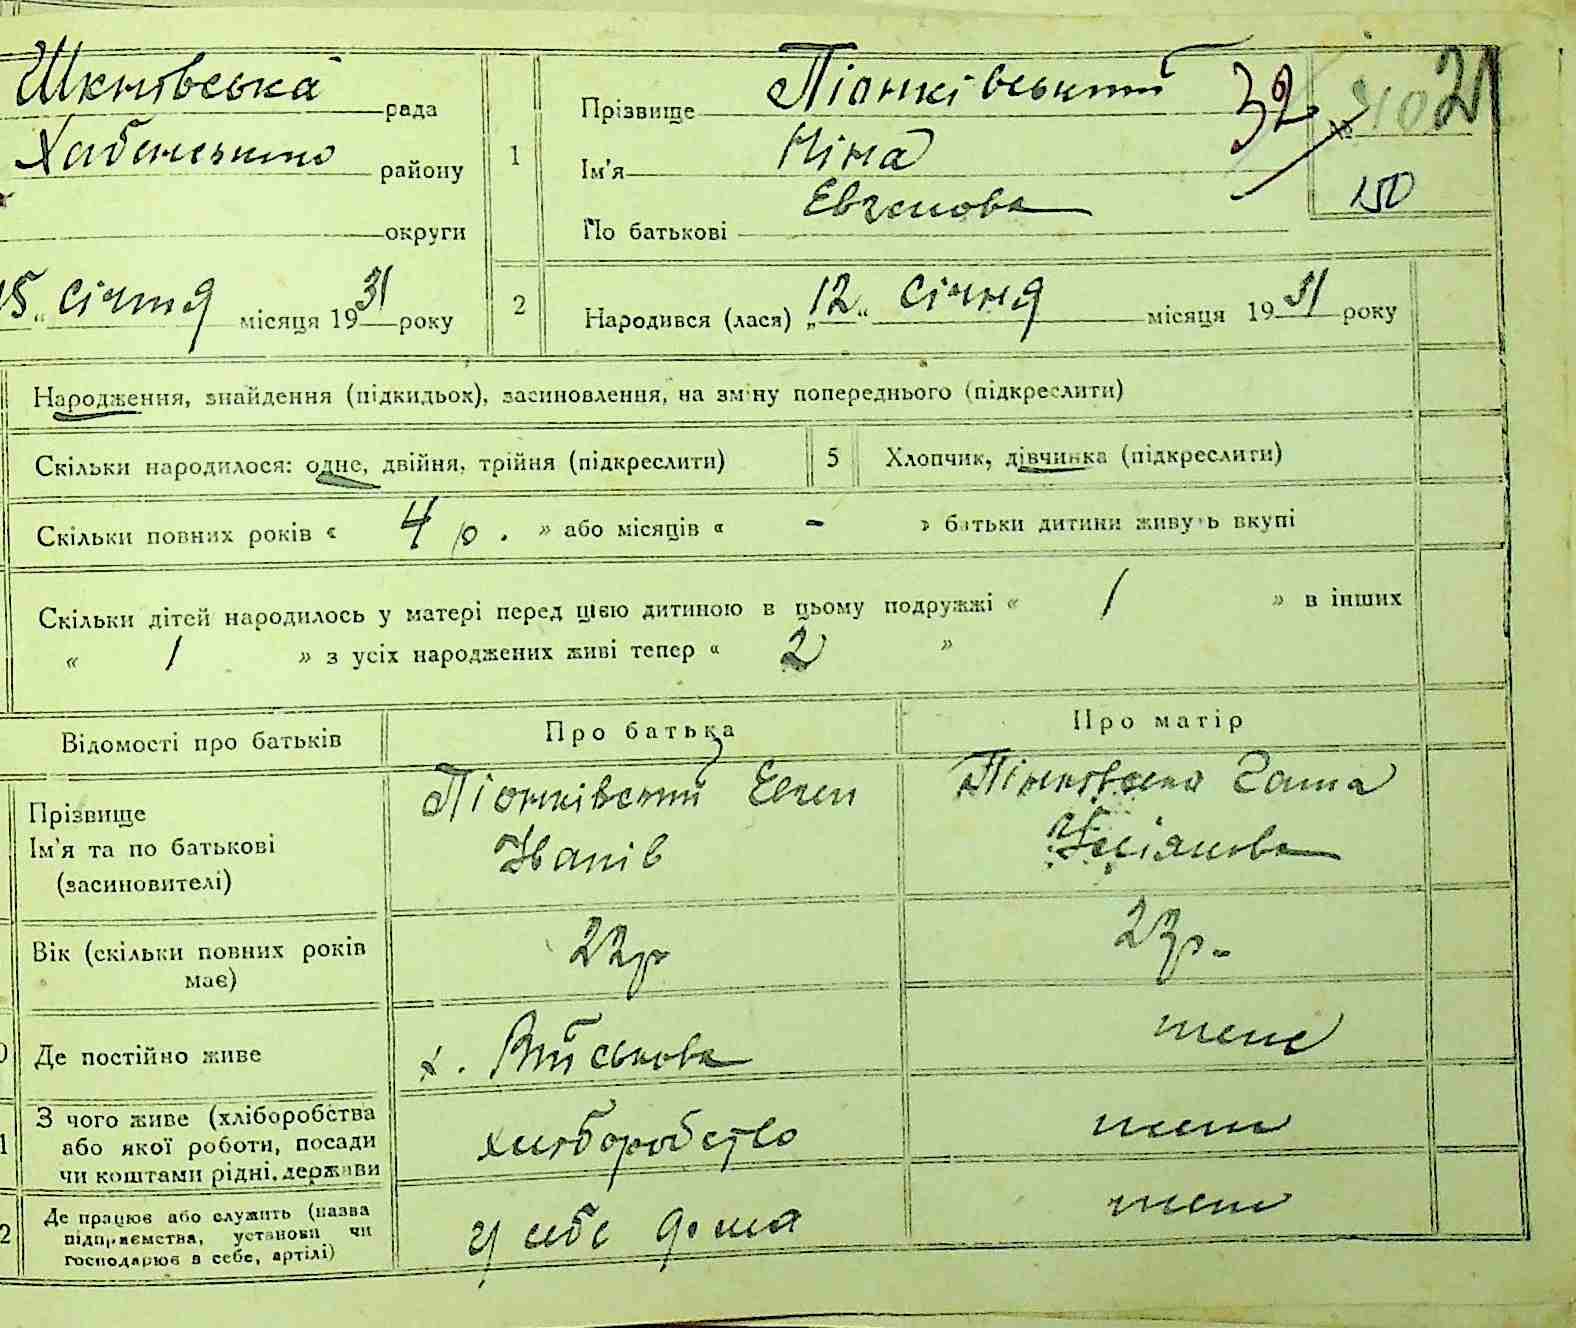 Шкнівська рада
Хабенського району
округи
15 „ січня місяця 1931 року
1
Прізвище Піонківський
Ім'я Ніна
По батькові Евгенова
32
№
21
150
2
Народився (лася) „12“ січня місяця 1931 року
Народження, знайдення (підкидьох), засиновлення, на зміну попереднього (підкреслити)
Скільки народилося: одне, двійня, трійня (підкреслити)
5
Хлопчик, дівчинка (підкреслити)
Скільки повних років « 4 р. » або місяців « - » батьки дитини живуть вкупі
Скільки дітей народилось у матері перед цією дитиною в цьому подружжі « 1 » в інших
« 1 » з усіх народжених живі тепер « 2 »
Відомості про батьків
Про батька
Про матір
Прізвище
Ім'я та по батькові
(засиновителі)
Піонківский Евген
Іванів
Гаша
Вік (скільки повних років
має)
22р
23р.
Де постійно живе
х. Військова
теж
1
З чого живе (хліборобства
або якої роботи, посади
чи коштами рідні, держави
хліборобство
теж
2
Де працює або служить (назва
підприємства, установи чи
господарює в себе, артілі)
у себе дома
теж